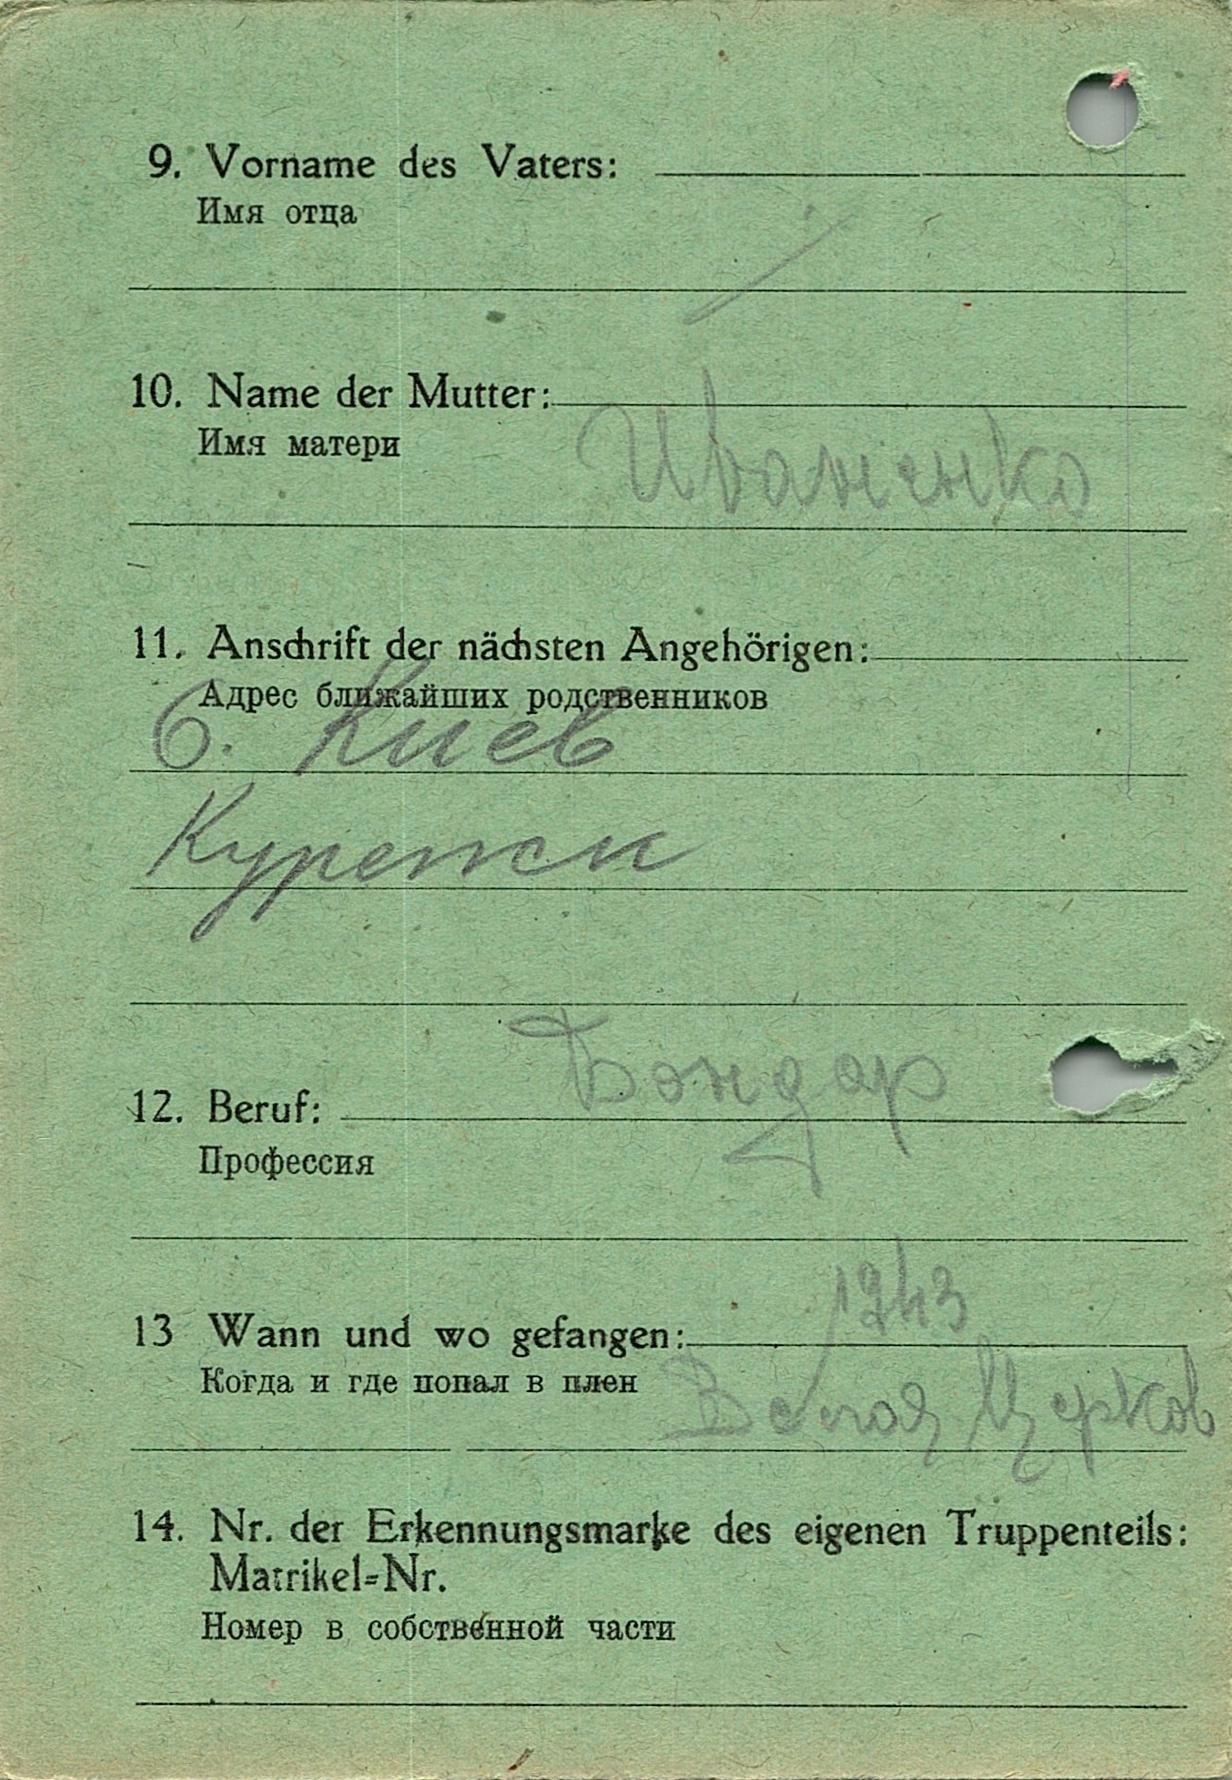 9. Vorname des Vaters:
Имя отца
10. Name der Mutter:
Имя матери
Иваненко
11. Anschrift der nächsten Angehörigen:
Адрес ближайших родственников
Киев
12. Beruf:
Бондар
Профессия
1943
13 Wann und wo gefangen:
Когда и где попал в плен
Белая Церков
14. Nr. der Erkennungsmarke des eigenen Truppenteils:
Matrikel=Nr.
Номер в собственной части